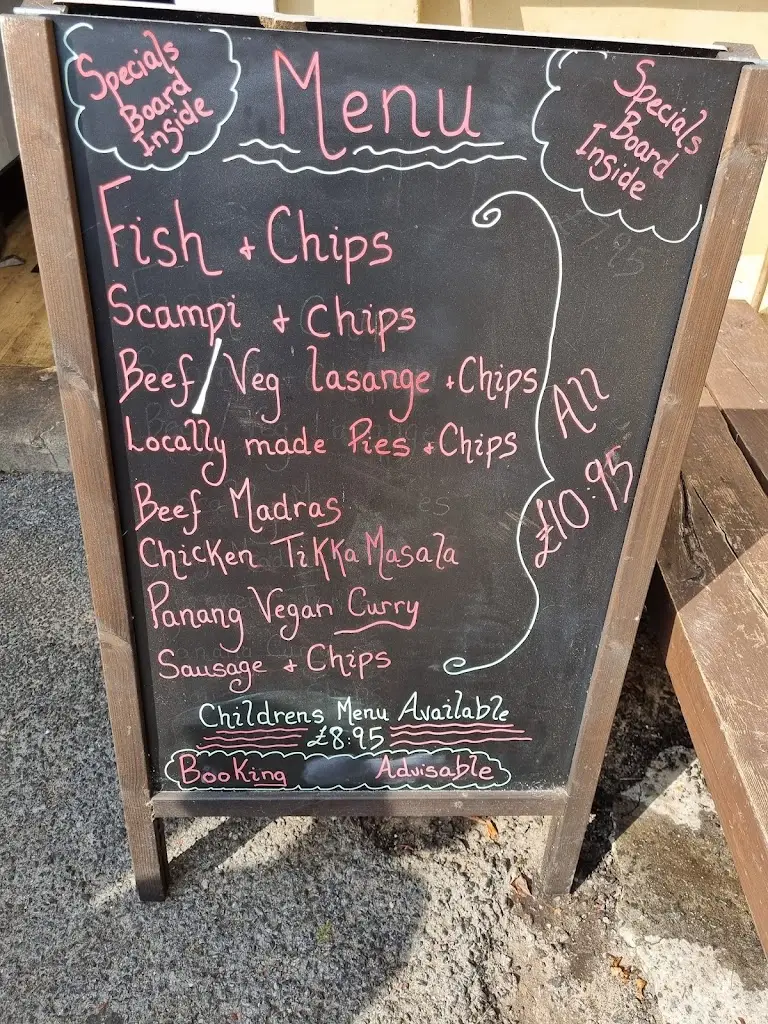 Specials
Board
Inside
Menu
Specials
Board
Inside
Fish + Chips
Scampi + Chips
Beef/Veg lasange + Chips
Locally made Pies + Chips
Beef Madras
Chicken Tikka Masala
Panang Vegan Curry
Sausage + Chips
All
£10.95
Childrens Menu Available
£8.95
Booking Advisable